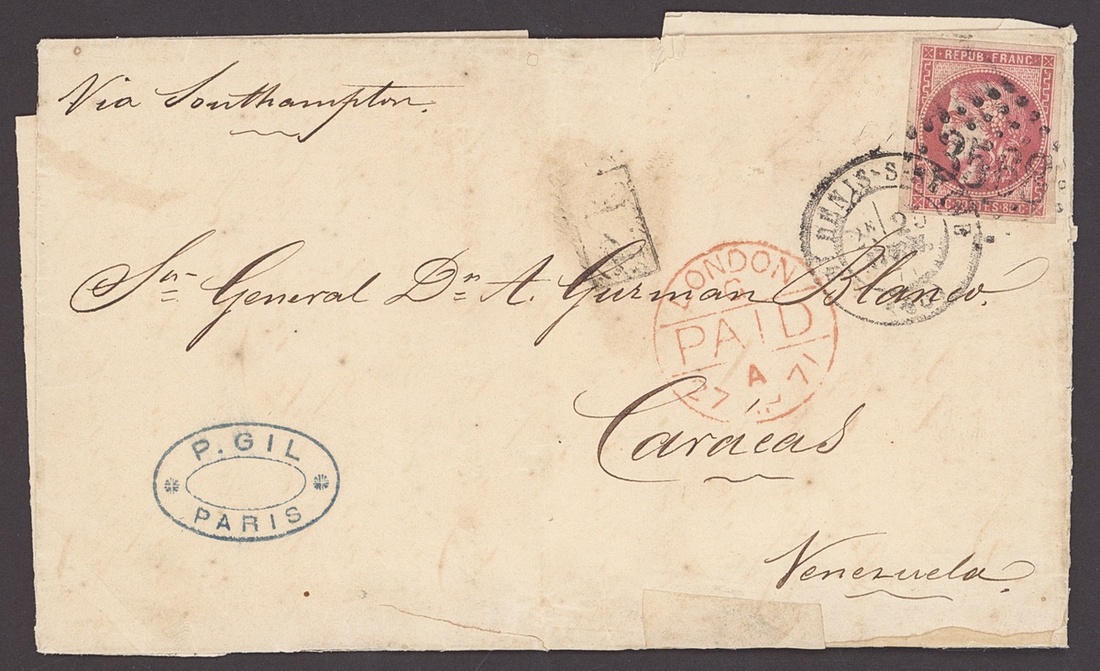 Via Southampton.
REPUB. FRANC
Sor General Dn A. Guzman Blanco.
LONDON
PAID
A
27 71
Carácas
P. GIL
PARIS
Venezuela